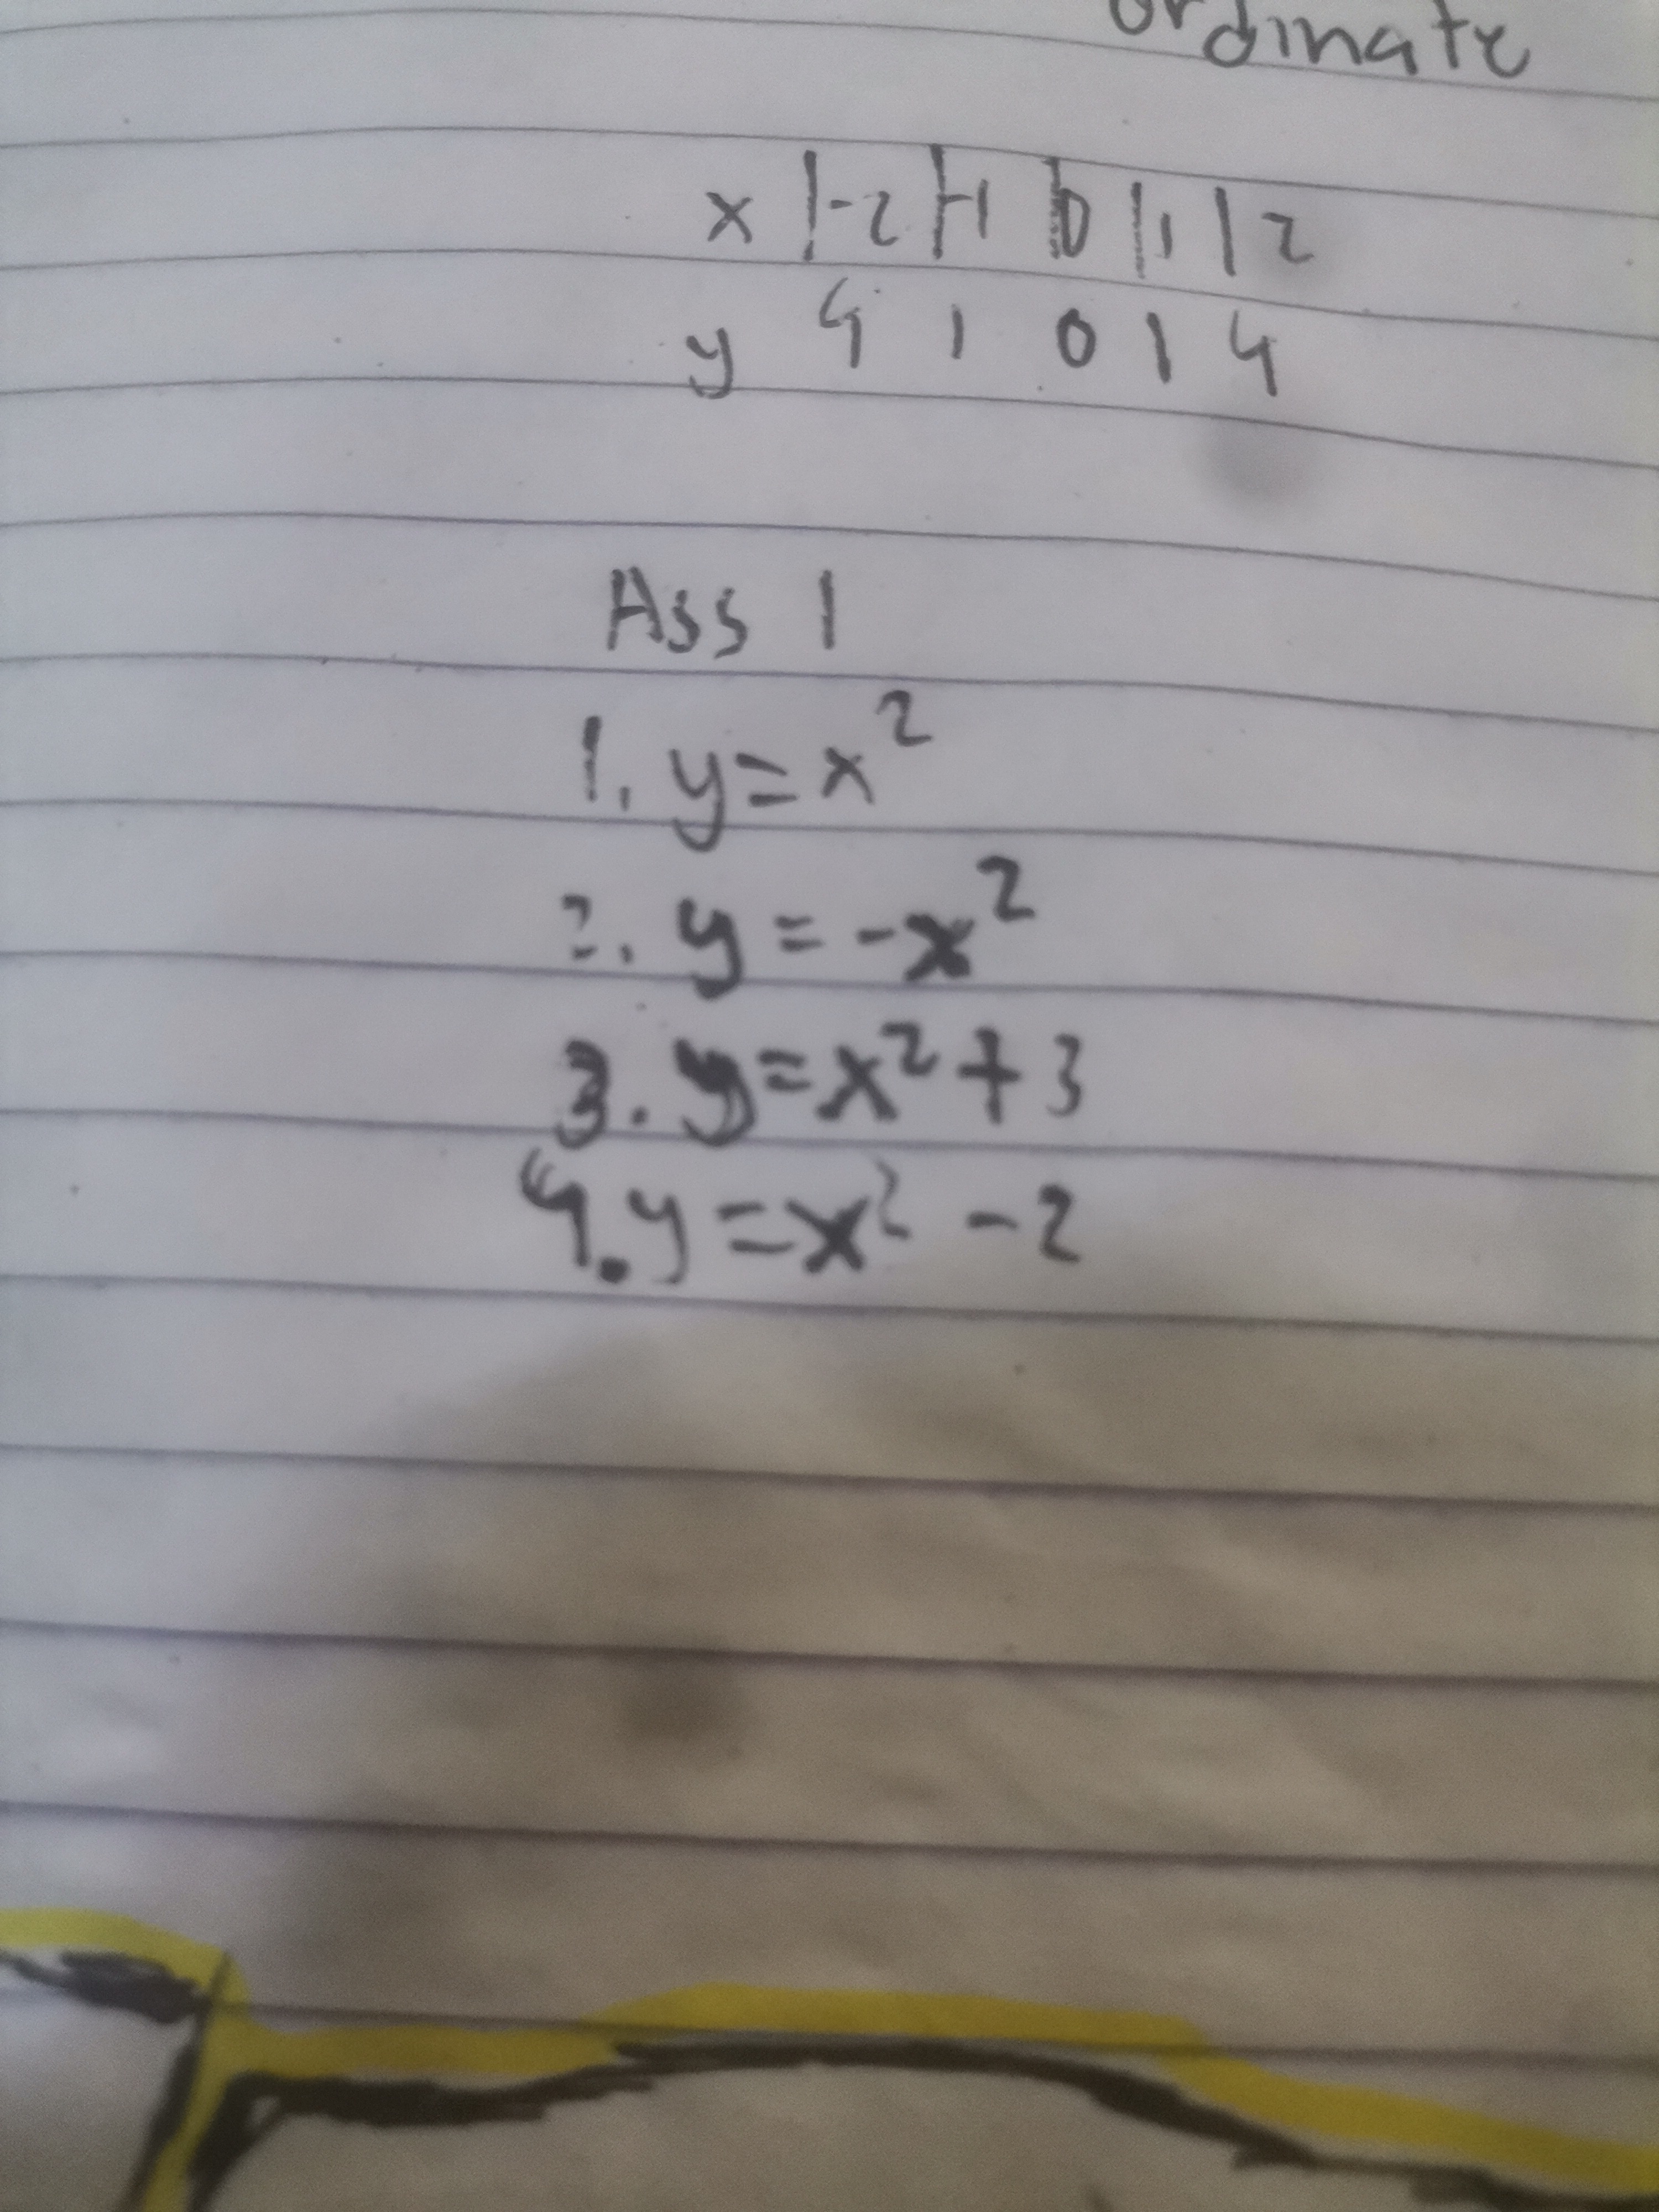 ordinate
x | -2 | -1 | 0 | 1 | 2
y 4 1 0 1 4
Ass 1
1. y = x²
2. y = -x²
3. y = x² + 3
4. y = x² - 2